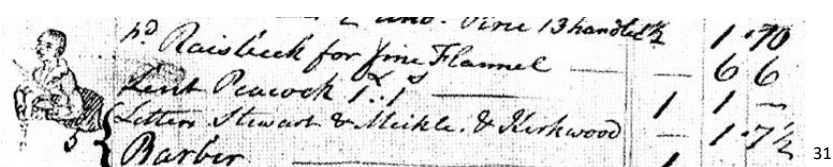 Vine 13 handled ½ 1 · 70
pd Raisbeck for fine Flannel — — 6 6
Lent Peacock £1. 1s — 1 1 —
5 { Letters Stewart & Meikle. & Kirkwood — 1 · 7½
Barber — 1
31